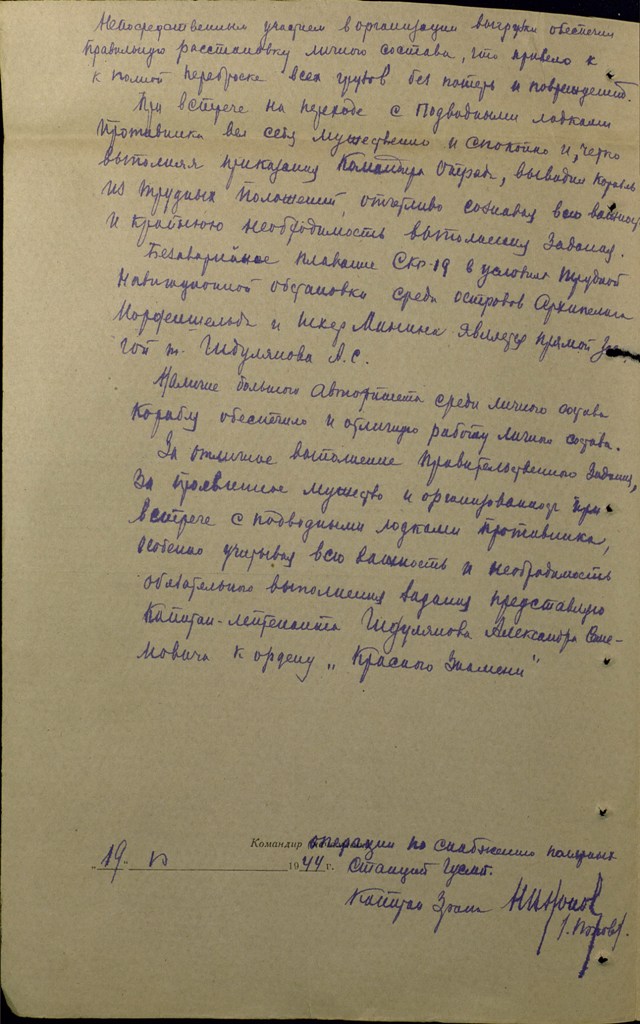 Непосредственным участием в организации выгрузки обеспечил
правильную расстановку личного состава, что привело к
к полной переброске всех грузов без потерь и повреждений.
При встрече на переходе с подводными лодками
противника вел себя мужественно и спокойно и, четко
выполняя приказания Командира Отряда, выводил корабль
из трудных положений, отчетливо сознавая всю важность
и крайнюю необходимость выполнения задания.
Безаварийное плавание СКР-19 в условиях трудной
навигационной обстановки среди островов Архипелага
Норденшельда и шхер Минина является прямой
гой т. Гидулянова А.С.
Наличие большого авторитета среди личного состава
корабля обеспечило и отличную работу личного состава.
За отличное выполнение Правительственного задания,
за проявленное мужество и организованность при
встрече с подводными лодками противника,
особенно учитывая всю важность и необходимость
обязательного выполнения задания представляю
Капитан-лейтенанта Гидулянова Александра Сте-
мовича к ордену „Красного Знамени"
Командир операции по снабжению полярных
„19" 1944 г. Станций Гусмп.
Капитан 3 ранга